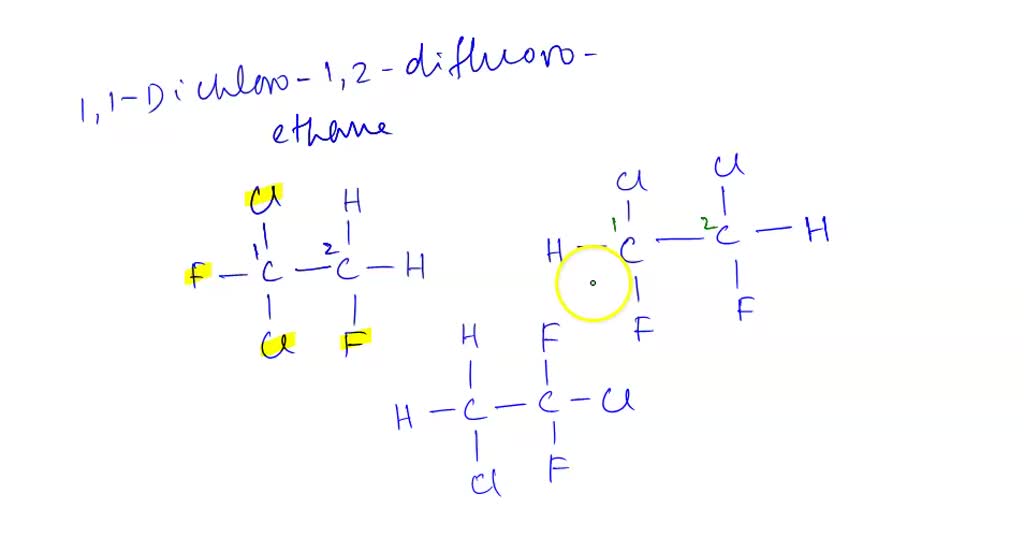 1,1-Dichloro-1,2-difluoro-
ethane
Cl H
1 2
F-C-C-H
Cl F
Cl Cl
1 2
H-C-C-H
F F
H F
H-C-C-Cl
Cl F